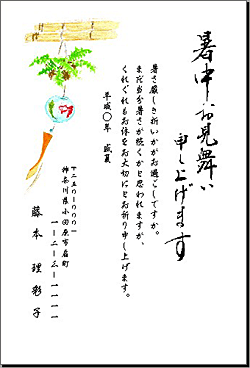 暑中お見舞い
申し上げます
暑さ厳しき折いかがお過ごしですか。
まだ当分暑さが続くかと思われますが、
くれぐれもお体をお大切にとお祈り申し上げます。
平成〇年 盛夏
〒二五〇-〇〇〇一
神奈川県小田原市扇町
一-二-三-一一一一
藤本 理彩子